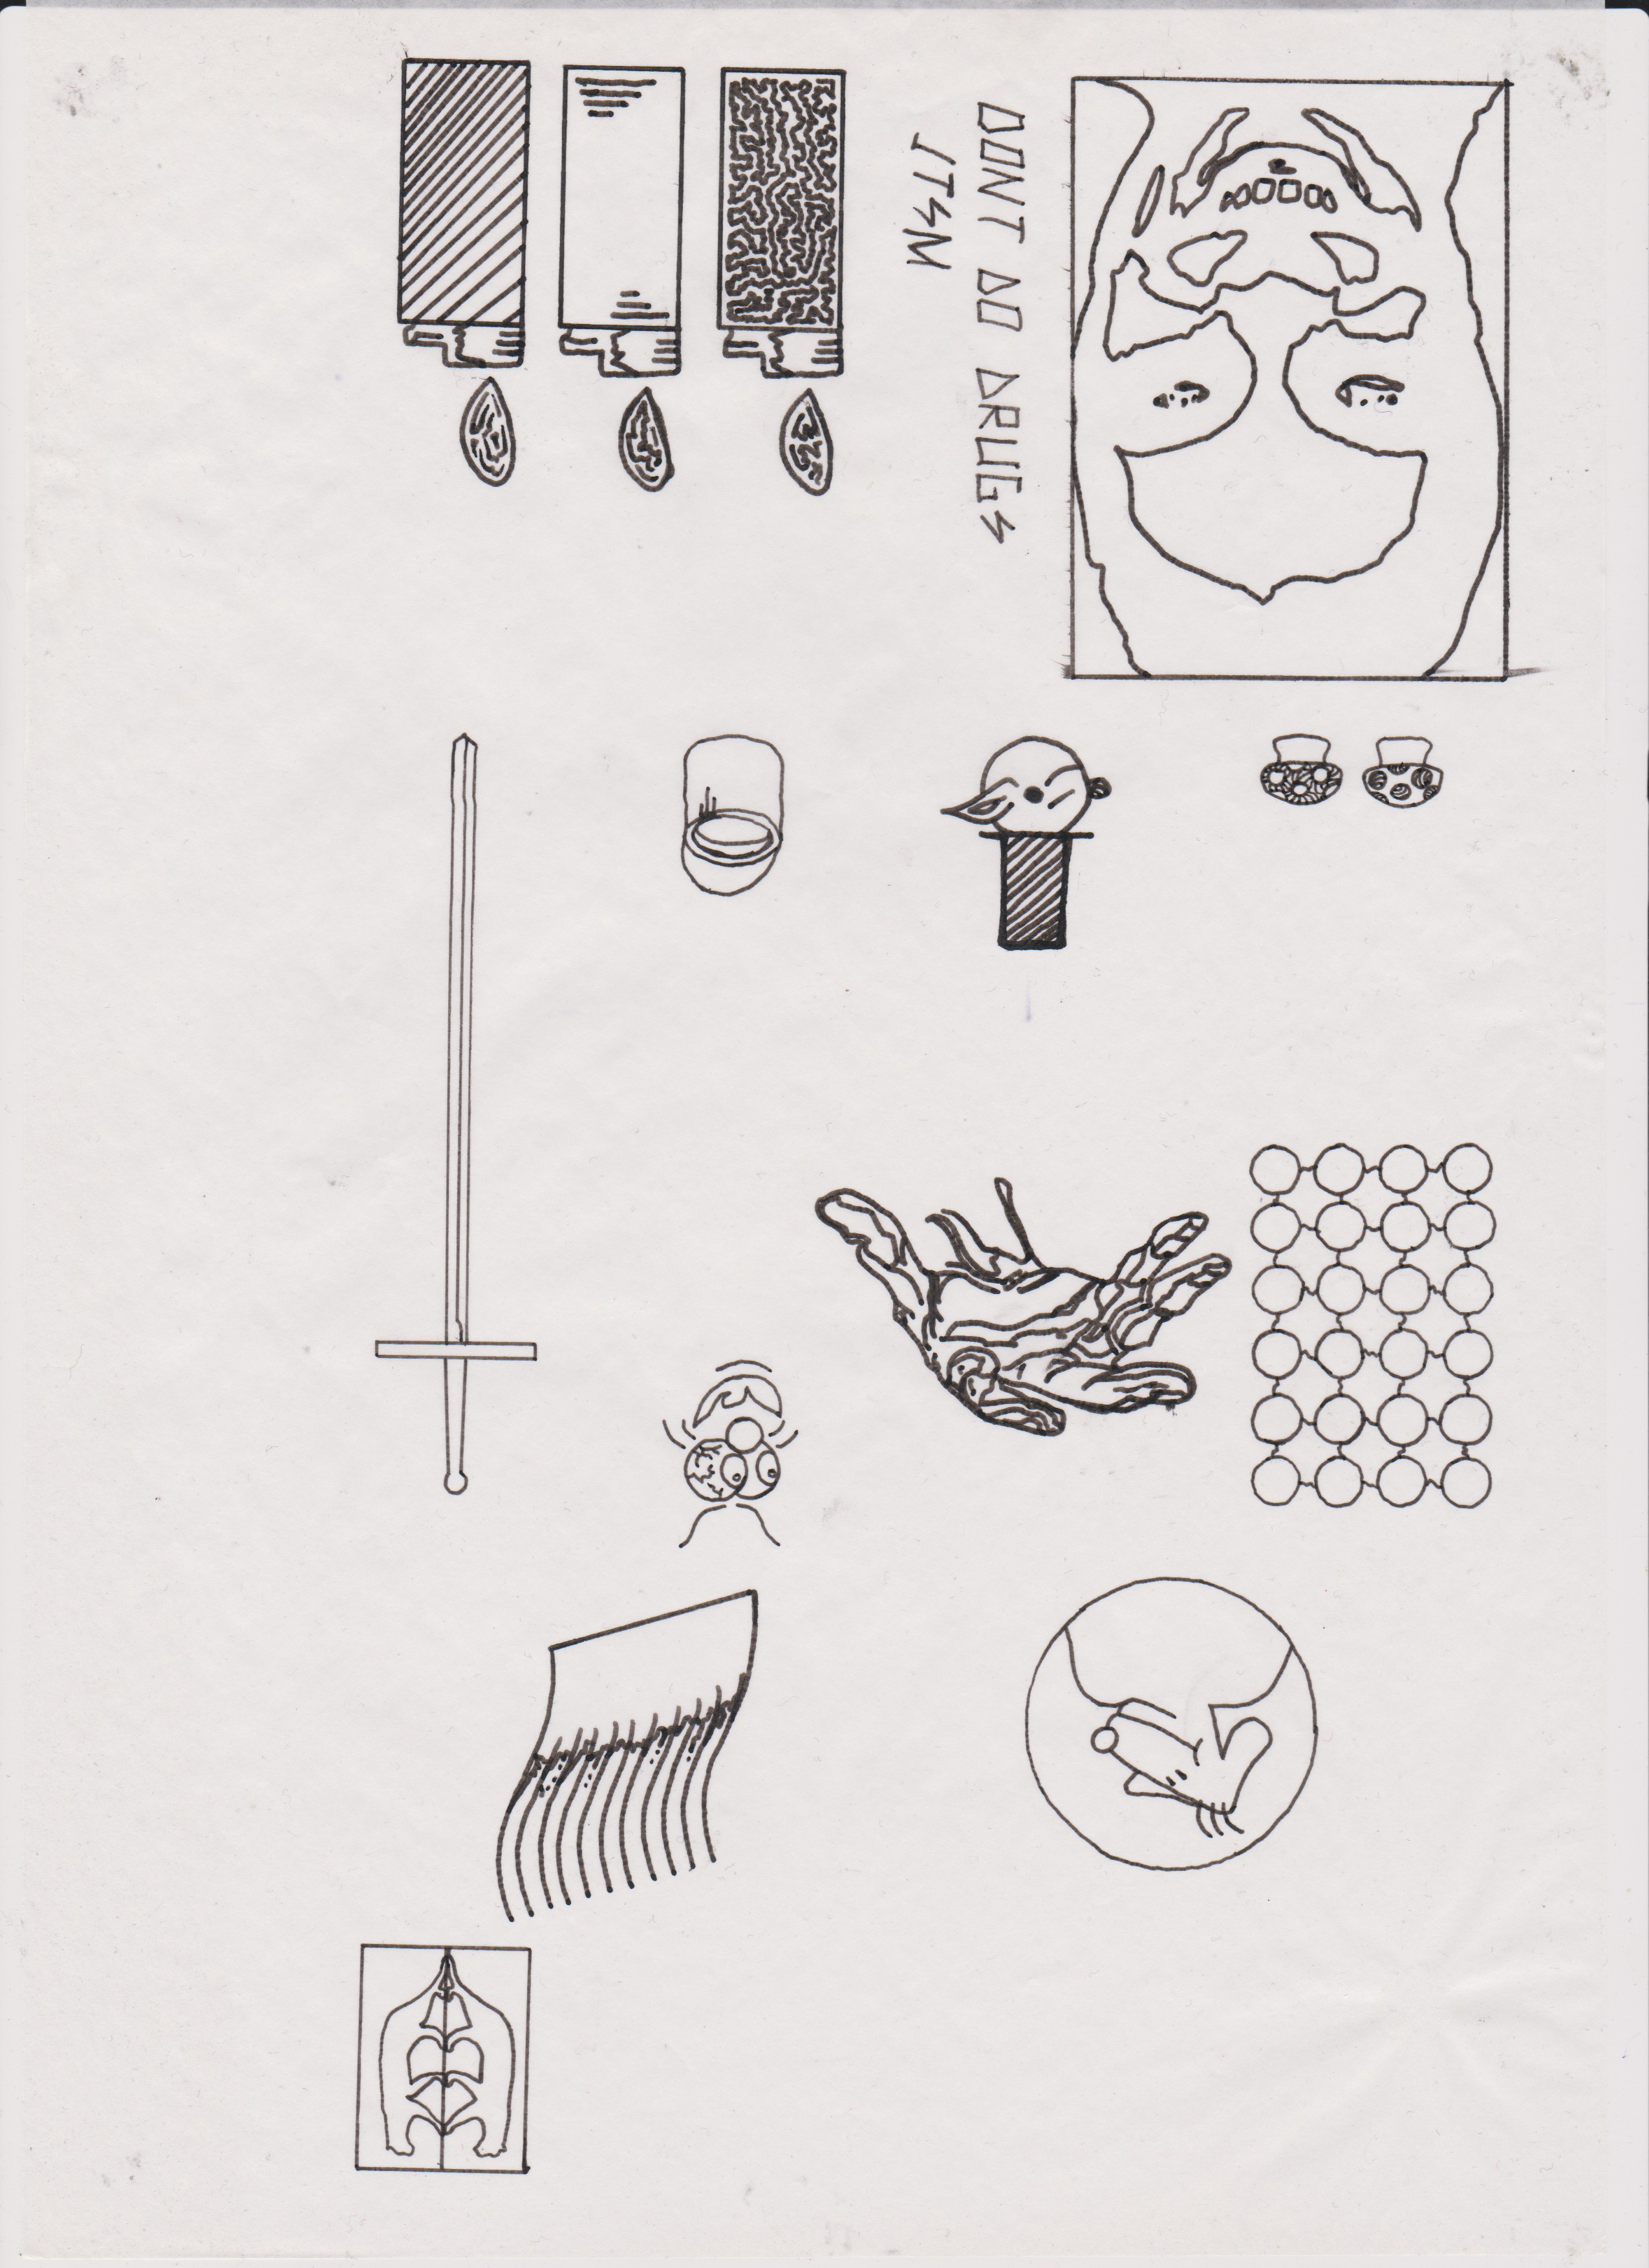 DONT DO DRUGS
ITSM